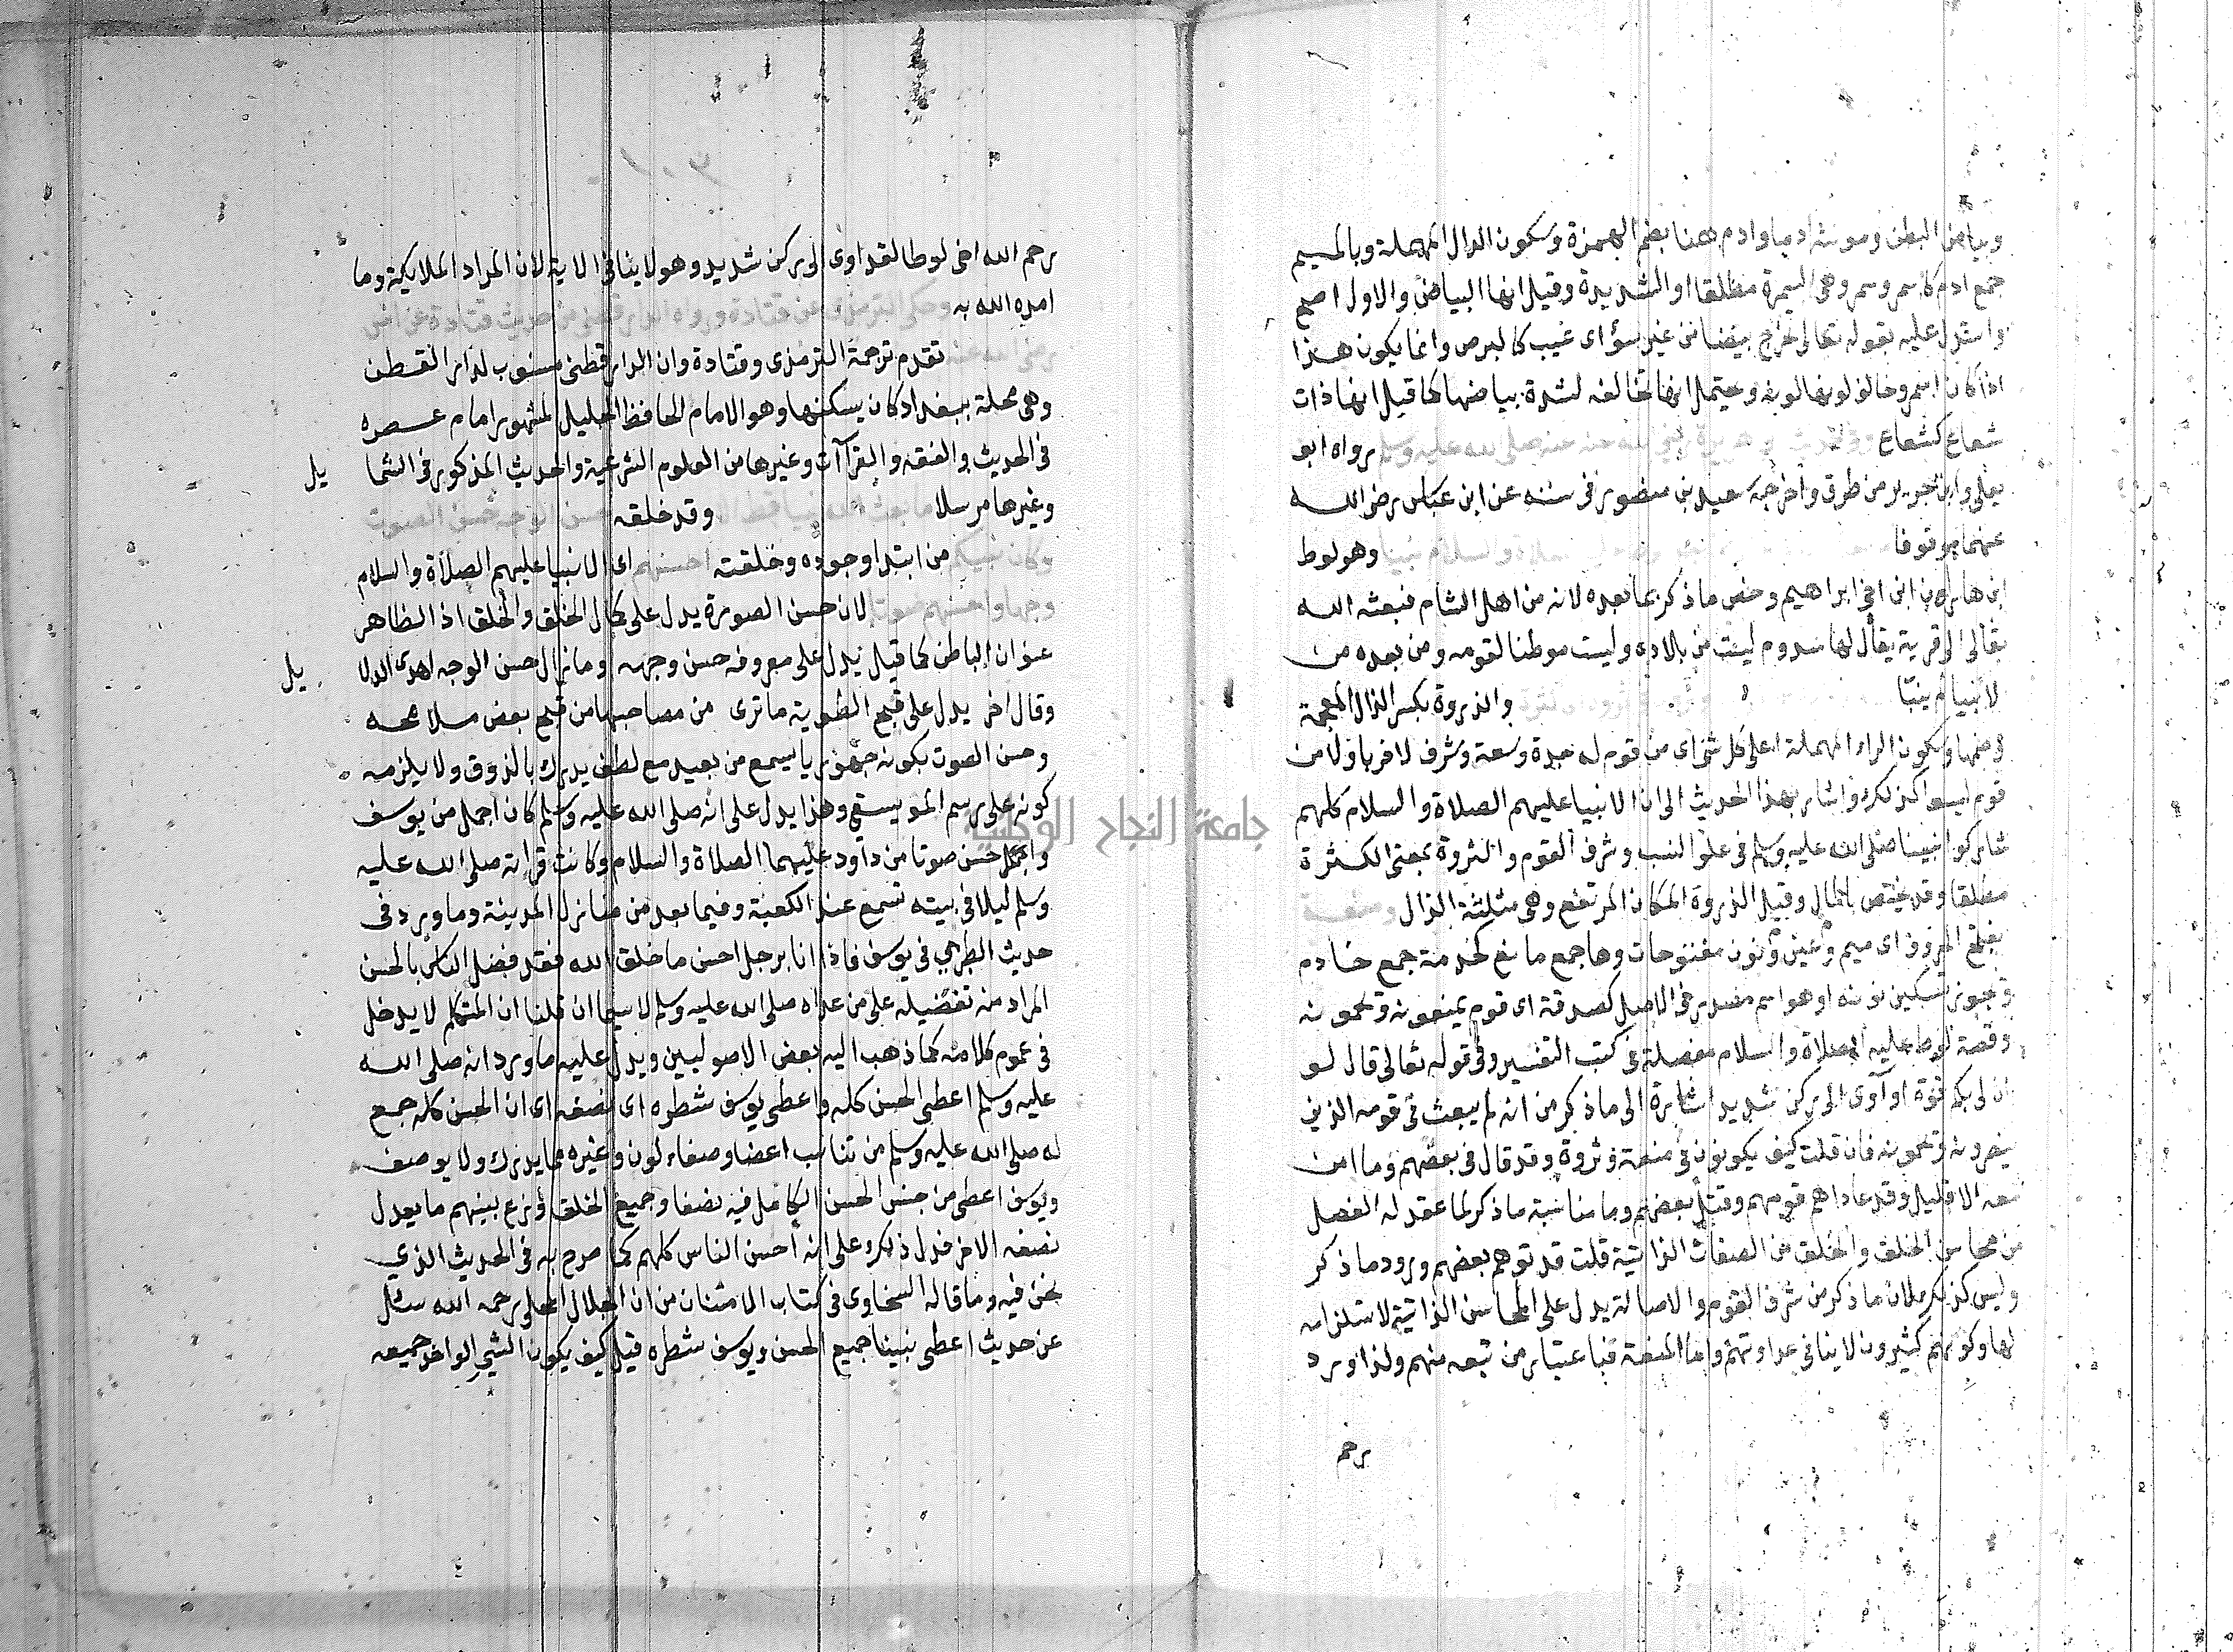 وبياض البطن ومونثه ادما وادم هنا بضم الهمزة وسكون الدال المهملة وبالميم
جمع ادم كاسمر وسمر وهى السمرة مطلقا او الشديدة وقيل انها البياض والاول اصح
واستدل عليه بقوله تعالى تخرج بيضا من غير سؤاى عيب كالبرص وانما يكون هذا
اذا كان اسمر وخالف لونها لونه ويحتمل انها تخالفه لشدة بياضها كما قيل انها ذات
شعاع كشعاع رواه ابو
يعلى وابن جرير من طرق واخرجه سعيد بن منصور فى سننه عن ابن عباس رضى الله
عنهما موقوفا وهو لوط
ابن هاران ابن اخى ابراهيم وخص ما ذكر بما بعده لانه من اهل الشام فبعثه الله
تعالى الى قرية يقال لها سدوم ليست من بلاده وليست موطنا لقومه ومن بعده من
لانبيا لم ينبا والذروة بكسر الذال المعجمة
وضمها وسكون الراء المهملة اعلى كل شئ اى من قوم له جدة وسعة وشرف لا فربا ولا من
قوم ليسوا كذلك واشار بهذا الحديث الى ان الانبيا عليهم الصلاة والسلام كلهم
شاركوا نبينا صلى الله عليه وسلم فى علو النسب وشرف القوم والثروة بمعنى الكثرة
مطلقا وقد يختص بالمال وقيل الذروة المكان المرتفع وهى مثلثة الذال ومنعة
بفتح الحروف اى ميم وعين ونون مفتوحات وها جمع مانع كخدمة جمع خادم
ويجوز تسكين نونه او هو اسم مصدر فى الاصل كصدقة اى قوم يمنعونه ويحمونه
وقصة لوط عليه الصلاة والسلام مفصلة فى كتب التفسير وفى قوله تعالى قال لو
ان لى بكم قوة او آوى الى ركن شديد اشارة الى ما ذكر من انه لم يبعث فى قومه الذين
ينصرونه ويحمونه فان قلت كيف يكونون فى منعة وثروة وقد قال فى بعضهم وما امن
معه الا قليل وقد عاداهم قومهم وقتل بعضهم وما مناسبة ما ذكر لما عقد له الفصل
من محاسن الخلق والخلق من الصفات الذاتية قلت قد توهم بعضهم ورود ما ذكر
وليس كذلك لان ما ذكر من شرف القوم والاصالة يدل على المحاسن الذاتية لاستلزامه
لها وكونهم كثيرون لا ينافى عداوتهم واما المنعة فباعتبار من تبعه منهم ولذا ورد
رحم
رحم الله اخى لوطا لقد اوى الى ركن شديد وهو لا ينافى الاية لان المراد الملايكة وما
امده الله به وحكى الترمذى عن قتادة ورواه الدارقطنى من حديث قتادة عن انس
رضى الله عنه تقدم ترجمة الترمذى وقتادة وان الدارقطنى منسوب لدار القطن
وهى محلة ببغداد كان يسكنها وهو الامام الحافظ الجليل المشهور امام عصره
فى الحديث والفقه والقراآت وغيرها من العلوم الشرعية والحديث المذكور فى الشما يل
وغيرها مرسلا ما بعث الله نبيا قط الا وقد خلقه حسن الوجه حسن الصوت
وكان نبيكم من ابتدا وجوده وخلقته احسنهم اى الانبيا عليهم الصلاة والسلام
وجها واحسنهم صوتا لان حسن الصورة يدل على كمال الخلق والخلق اذ الظاهر
عنوان الباطن كما قيل يدل على معروفه حسن وجهه وما زال حسن الوجه اهدى الدلا يل
وقال اخر يدل على قبح الطوية ما ترى من صاحبها من قبح بعض ملامحه
وحسن الصوت بكونه جهوريا يسمع من بعيد مع لطف يدرك بالذوق ولا يلزمه
كونه على رسم الموسيقى وهذا يدل على انه صلى الله عليه وسلم كان اجمل من يوسف
واحسن صوتا من داود عليهما الصلاة والسلام وكانت قراته صلى الله عليه
وسلم ليلا فى بيته تسمع عند الكعبة وفيما بعد من منازل المدينة وما ورد فى
حديث الطبرانى فى يوسف فاذا انا برجل احسن ما خلق الله فقد فضل الناس بالحسن
المراد منه تفضيله على من عداه صلى الله عليه وسلم لا سيما ان قلنا ان المتكلم لا يدخل
فى عموم كلامه كما ذهب اليه بعض الاصوليين ويدل عليه ما ورد انه صلى الله
عليه وسلم اعطى الحسن كله واعطى يوسف شطره اى نصفه اى ان الحسن كله جمع
له صلى الله عليه وسلم من تناسب اعضا وصفاء لون وغيره مما يدرك ولا يوصف
ويوسف اعطى من جنس الحسن الكامل فيه نصفا وجميع الخلق وزع بينهم ما يعدل
نصفه الاخر فدل ذلك على انه أحسن الناس كلهم كما صرح به فى الحديث الذي
نحن فيه وما قاله السخاوى فى كتاب الامتنان من ان الجلال المحلى رحمه الله سئل
عن حديث اعطى نبينا جميع الحسن ويوسف شطره قيل كيف يكون الشي الواحد جميعه
جامعة النجاح الوطنية